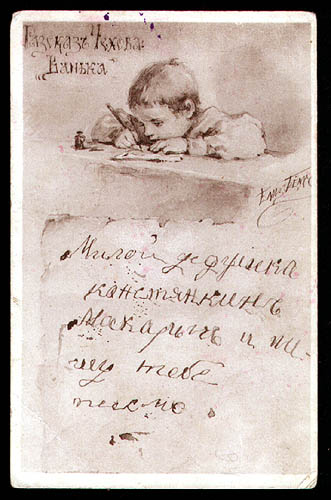 Разсказъ Чехова
„Ванька“
Елиз. Бемъ
Милой дедушка
канстянкинъ
Макарычъ и пи-
шу тебѣ
письмо.